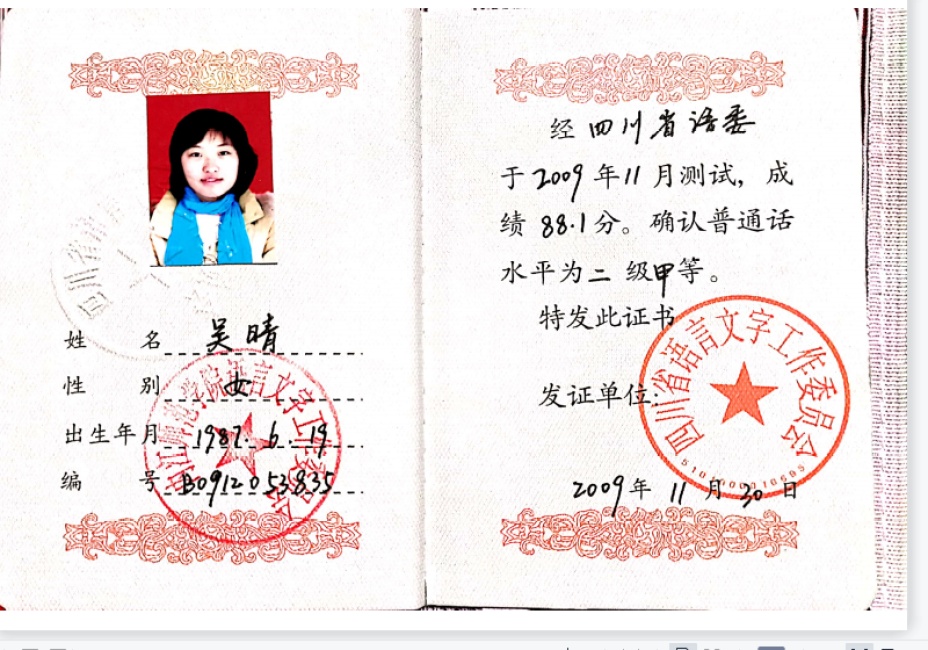 姓 名 吴晴
性 别 女
出生年月 1987.6.19
编 号 B0912053835
经 四川省语委
于 2009 年 11 月测试，成
绩 88.1 分。确认普通话
水平为 二 级 甲 等。
特发此证书
发证单位:
四川省语言文字工作委员会
2009 年 11 月 30 日